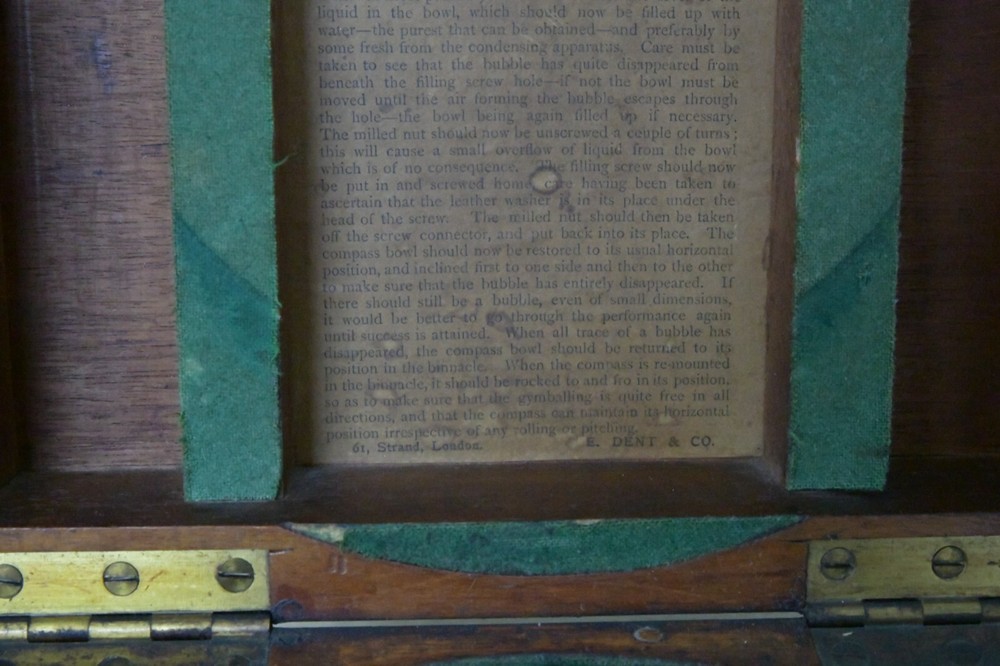 liquid in the bowl, which should now be filled up with
water—the purest that can be obtained—and preferably by
some fresh from the condensing apparatus. Care must be
taken to see that the bubble has quite disappeared from
beneath the filling screw hole—if not the bowl must be
moved until the air forming the bubble escapes through
the hole—the bowl being again filled up if necessary.
The milled nut should now be unscrewed a couple of turns;
this will cause a small overflow of liquid from the bowl
which is of no consequence. The filling screw should now
be put in and screwed home, care having been taken to
ascertain that the leather washer is in its place under the
head of the screw. The milled nut should then be taken
off the screw connector, and put back into its place. The
compass bowl should now be restored to its usual horizontal
position, and inclined first to one side and then to the other
to make sure that the bubble has entirely disappeared. If
there should still be a bubble, even of small dimensions,
it would be better to go through the performance again
until success is attained. When all trace of a bubble has
disappeared, the compass bowl should be returned to its
position in the binnacle. When the compass is re-mounted
in the binnacle, it should be rocked to and fro in its position,
so as to make sure that the gymballing is quite free in all
directions, and that the compass can maintain its horizontal
position irrespective of any rolling or pitching.
61, Strand, London. E. DENT & CO.